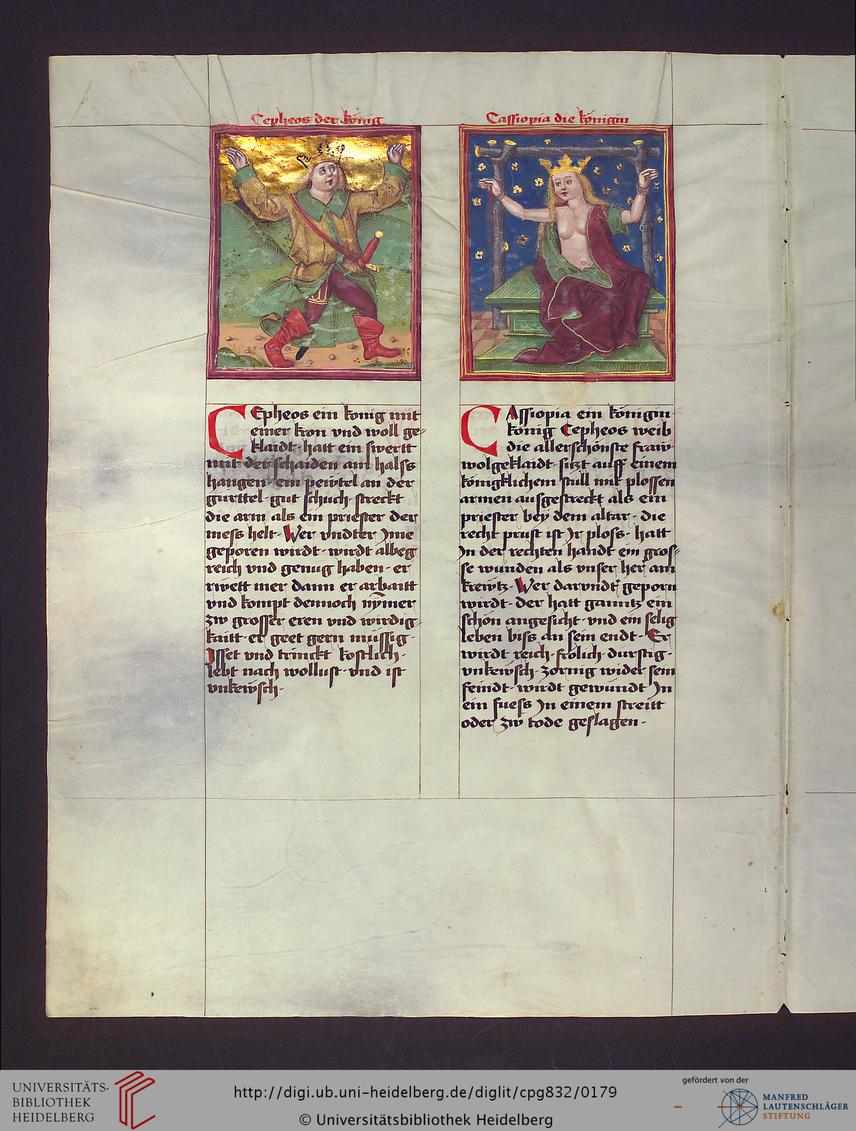 Cepheos der König
Cepheos ein konig mit
einer kron vnd woll ge-
klaidt· hatt ein swertt
mit der schaiden am halss
hangen· ein pewtel an der
gurttel· gut schuch· streckt
die arm als ein priester der
mess helt· Wer vndter Jme
geporen wirdt· wirdt albeg
reich vnd genug haben· er
mer dann er arbaitt
vnd kompt dennoch nymer
zw grosser eren vnd wirdig-
kaitt· er geet gern müssig·
Jsset vnd trinckt kostlich·
lebt nach wollust· vnd ist
vnkewsch·
Cassiopia die königin
CAssiopia ein königin
könig Cepheos weib
die allerschönste fraw
wolgeklaidt· sitzt auff einem
königklichem stüll mit plossen
armen aussgestreckt als ein
priester bey dem altar· die
recht prust ist Jr ploss· hatt
Jn der rechten handt ein gros-
se wunden als vnser her am
krewtz· Wer darundt geporn
wirdt· der hatt ganntz ein
schön angesicht· vnd ein selig
leben biss an sein endt· Er
wirdt reich· frölich· durstig·
vnkewsch· zornig wider sein
feindt· wirdt gewundt Jn
ein fuess Jn einem streitt
oder zw tode geslagen·
UNIVERSITÄTS-
BIBLIOTHEK
HEIDELBERG
http://digi.ub.uni-heidelberg.de/diglit/cpg832/0179
© Universitätsbibliothek Heidelberg
gefördert von der
MANFRED
LAUTENSCHLÄGER
STIFTUNG